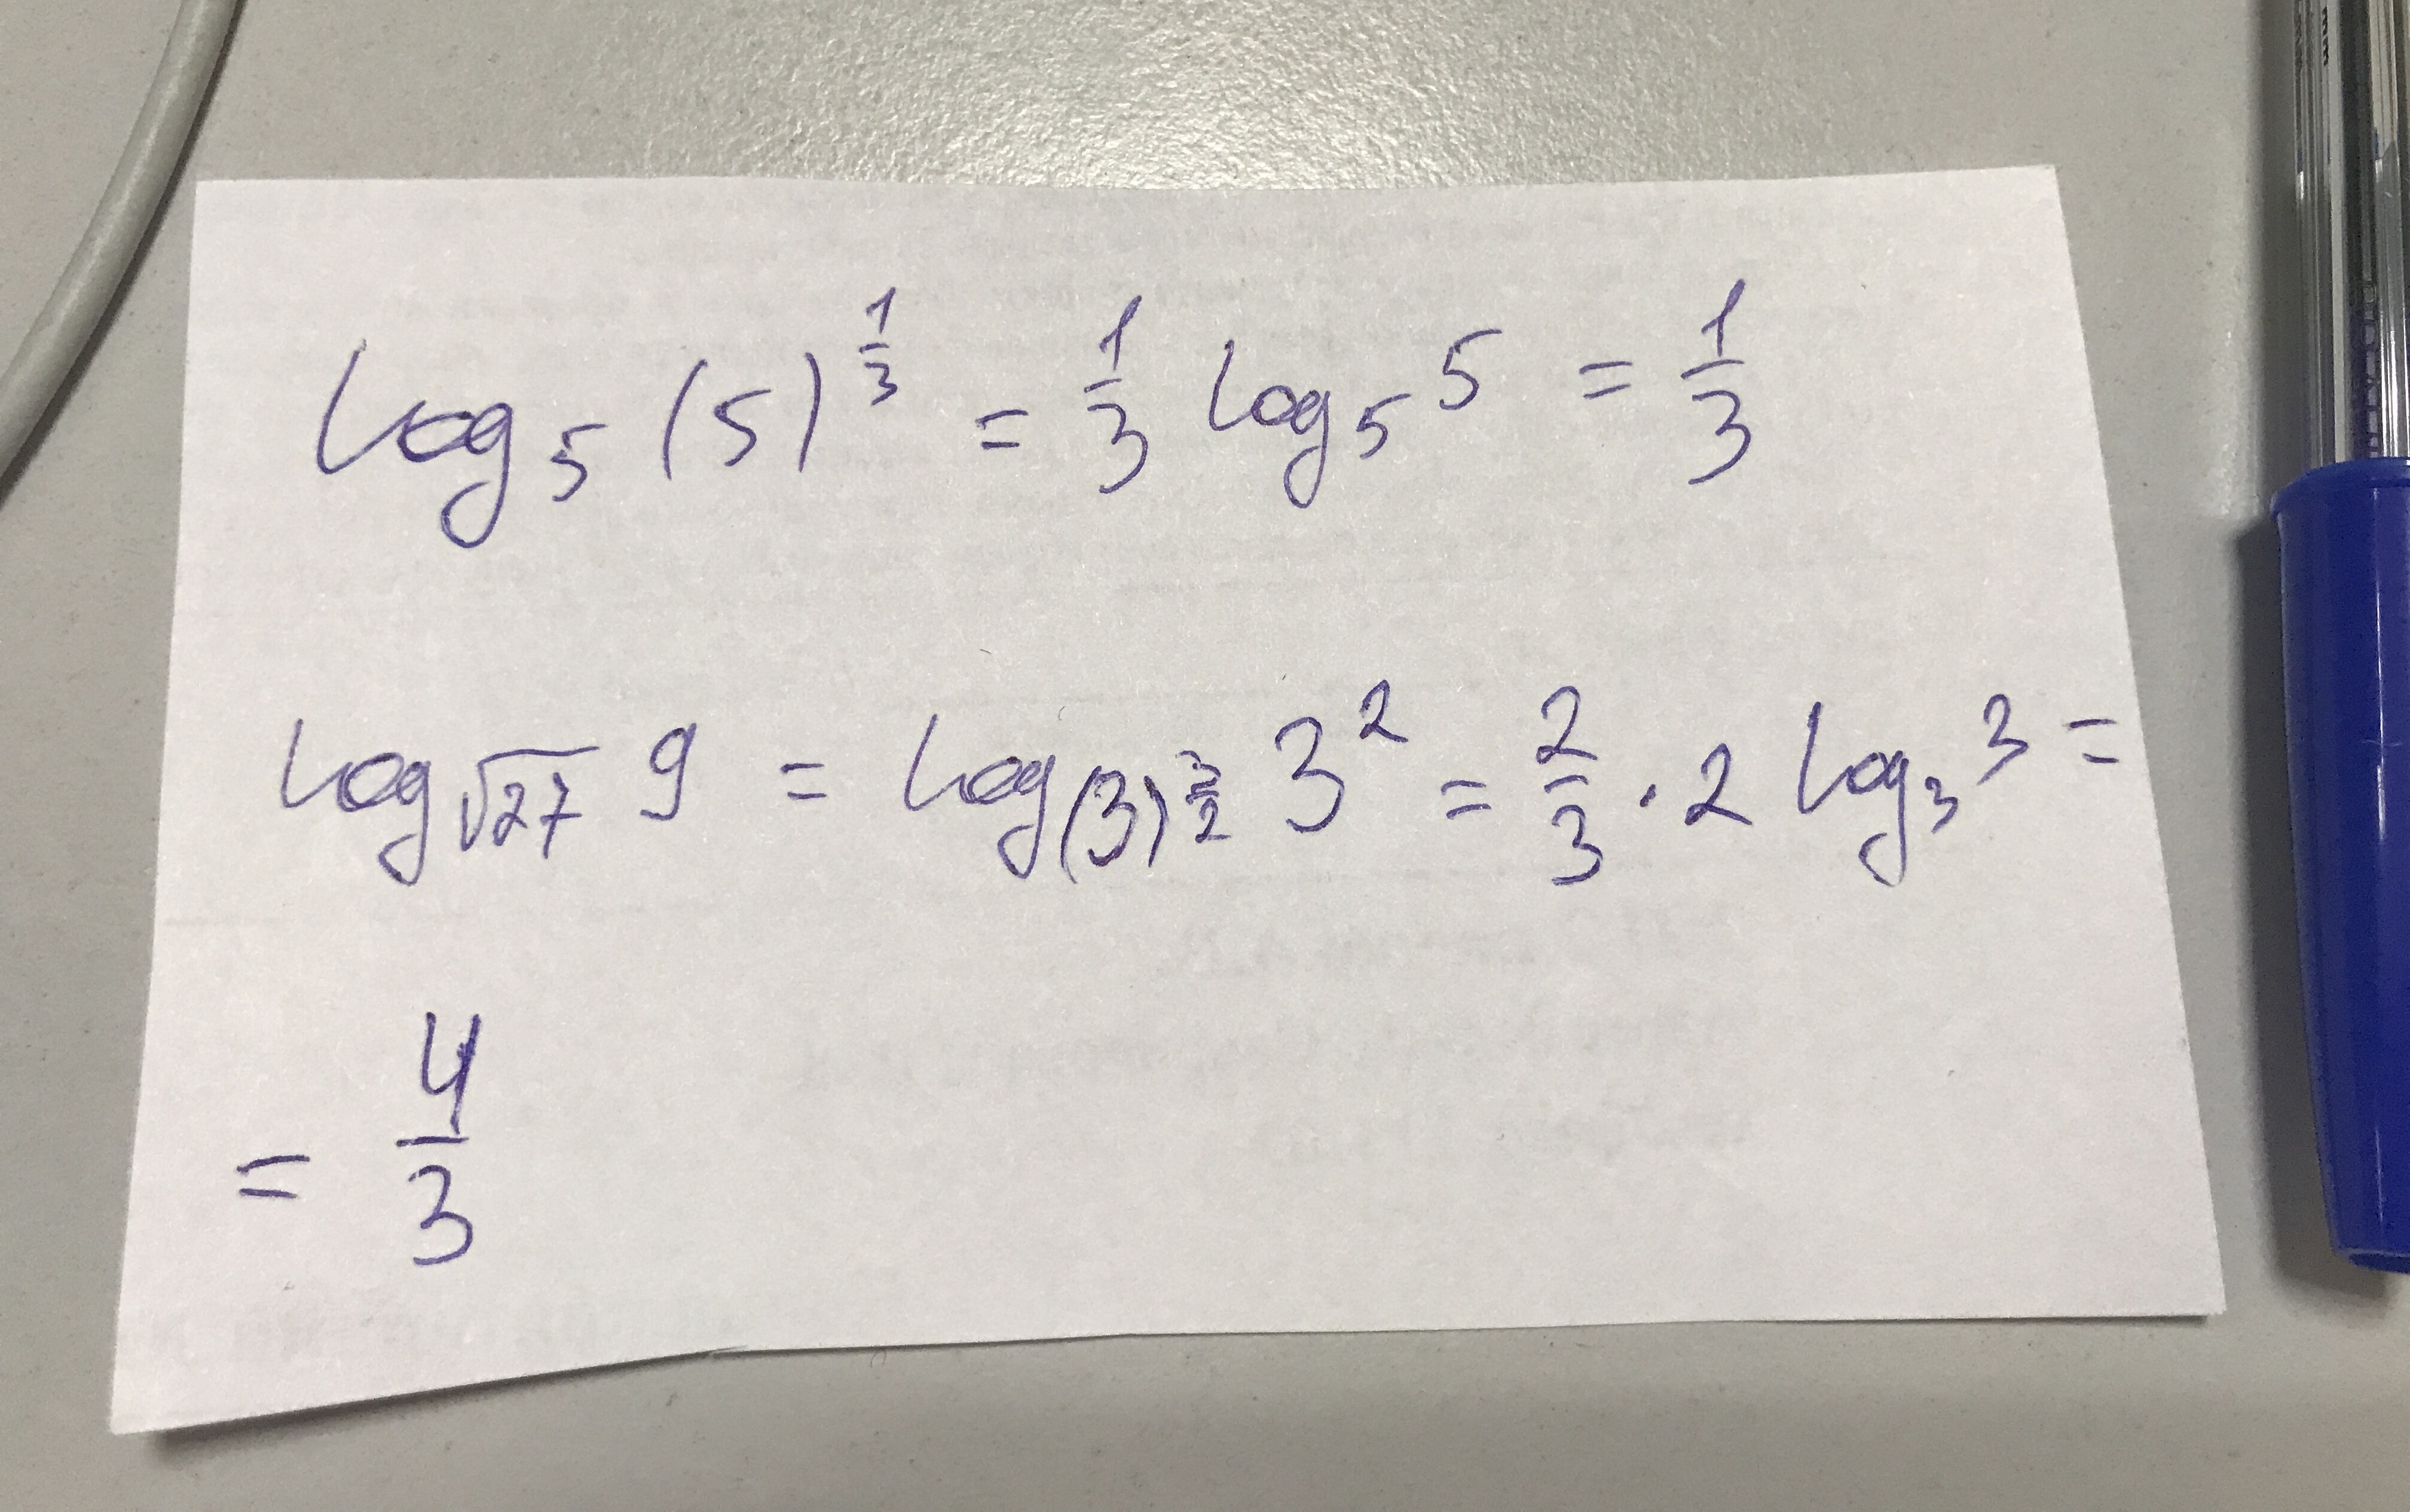 log₅(5)^(1/3) = 1/3 log₅ 5 = 1/3
log_√27 9 = log_(3)^(3/2) 3² = 2/3 · 2 log₃ 3 =
= 4/3